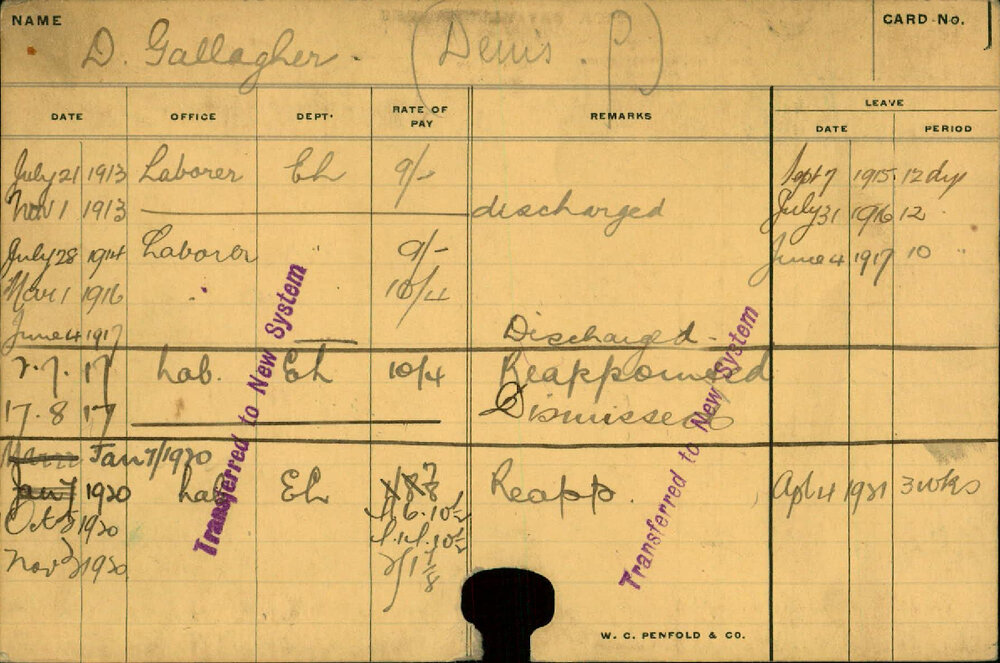 NAME
D. Gallagher. (Denis. P)
CARD No.
DATE OFFICE DEPT. RATE OF PAY REMARKS LEAVE
DATE PERIOD
July 21 1913 Laborer Eh 9/- Sept 7 1915 12 dys
Nov 1 1913 discharged July 31 1916 12 "
July 28 1914 Laborer " 9/- June 4 1917 10 "
Nov 1 1916 10/4
June 4 1917 Discharged.
7.7.17 Lab. Eh 10/4 Reappointed
17.8.17 Dismissed
Jan 7/1920
Jan 7 1920 Lab Eh Reapp. Apl 4 1921 3 wks
Oct 1920
Nov 1920
Transferred to New System
Transferred to New System
W. C. PENFOLD & CO.